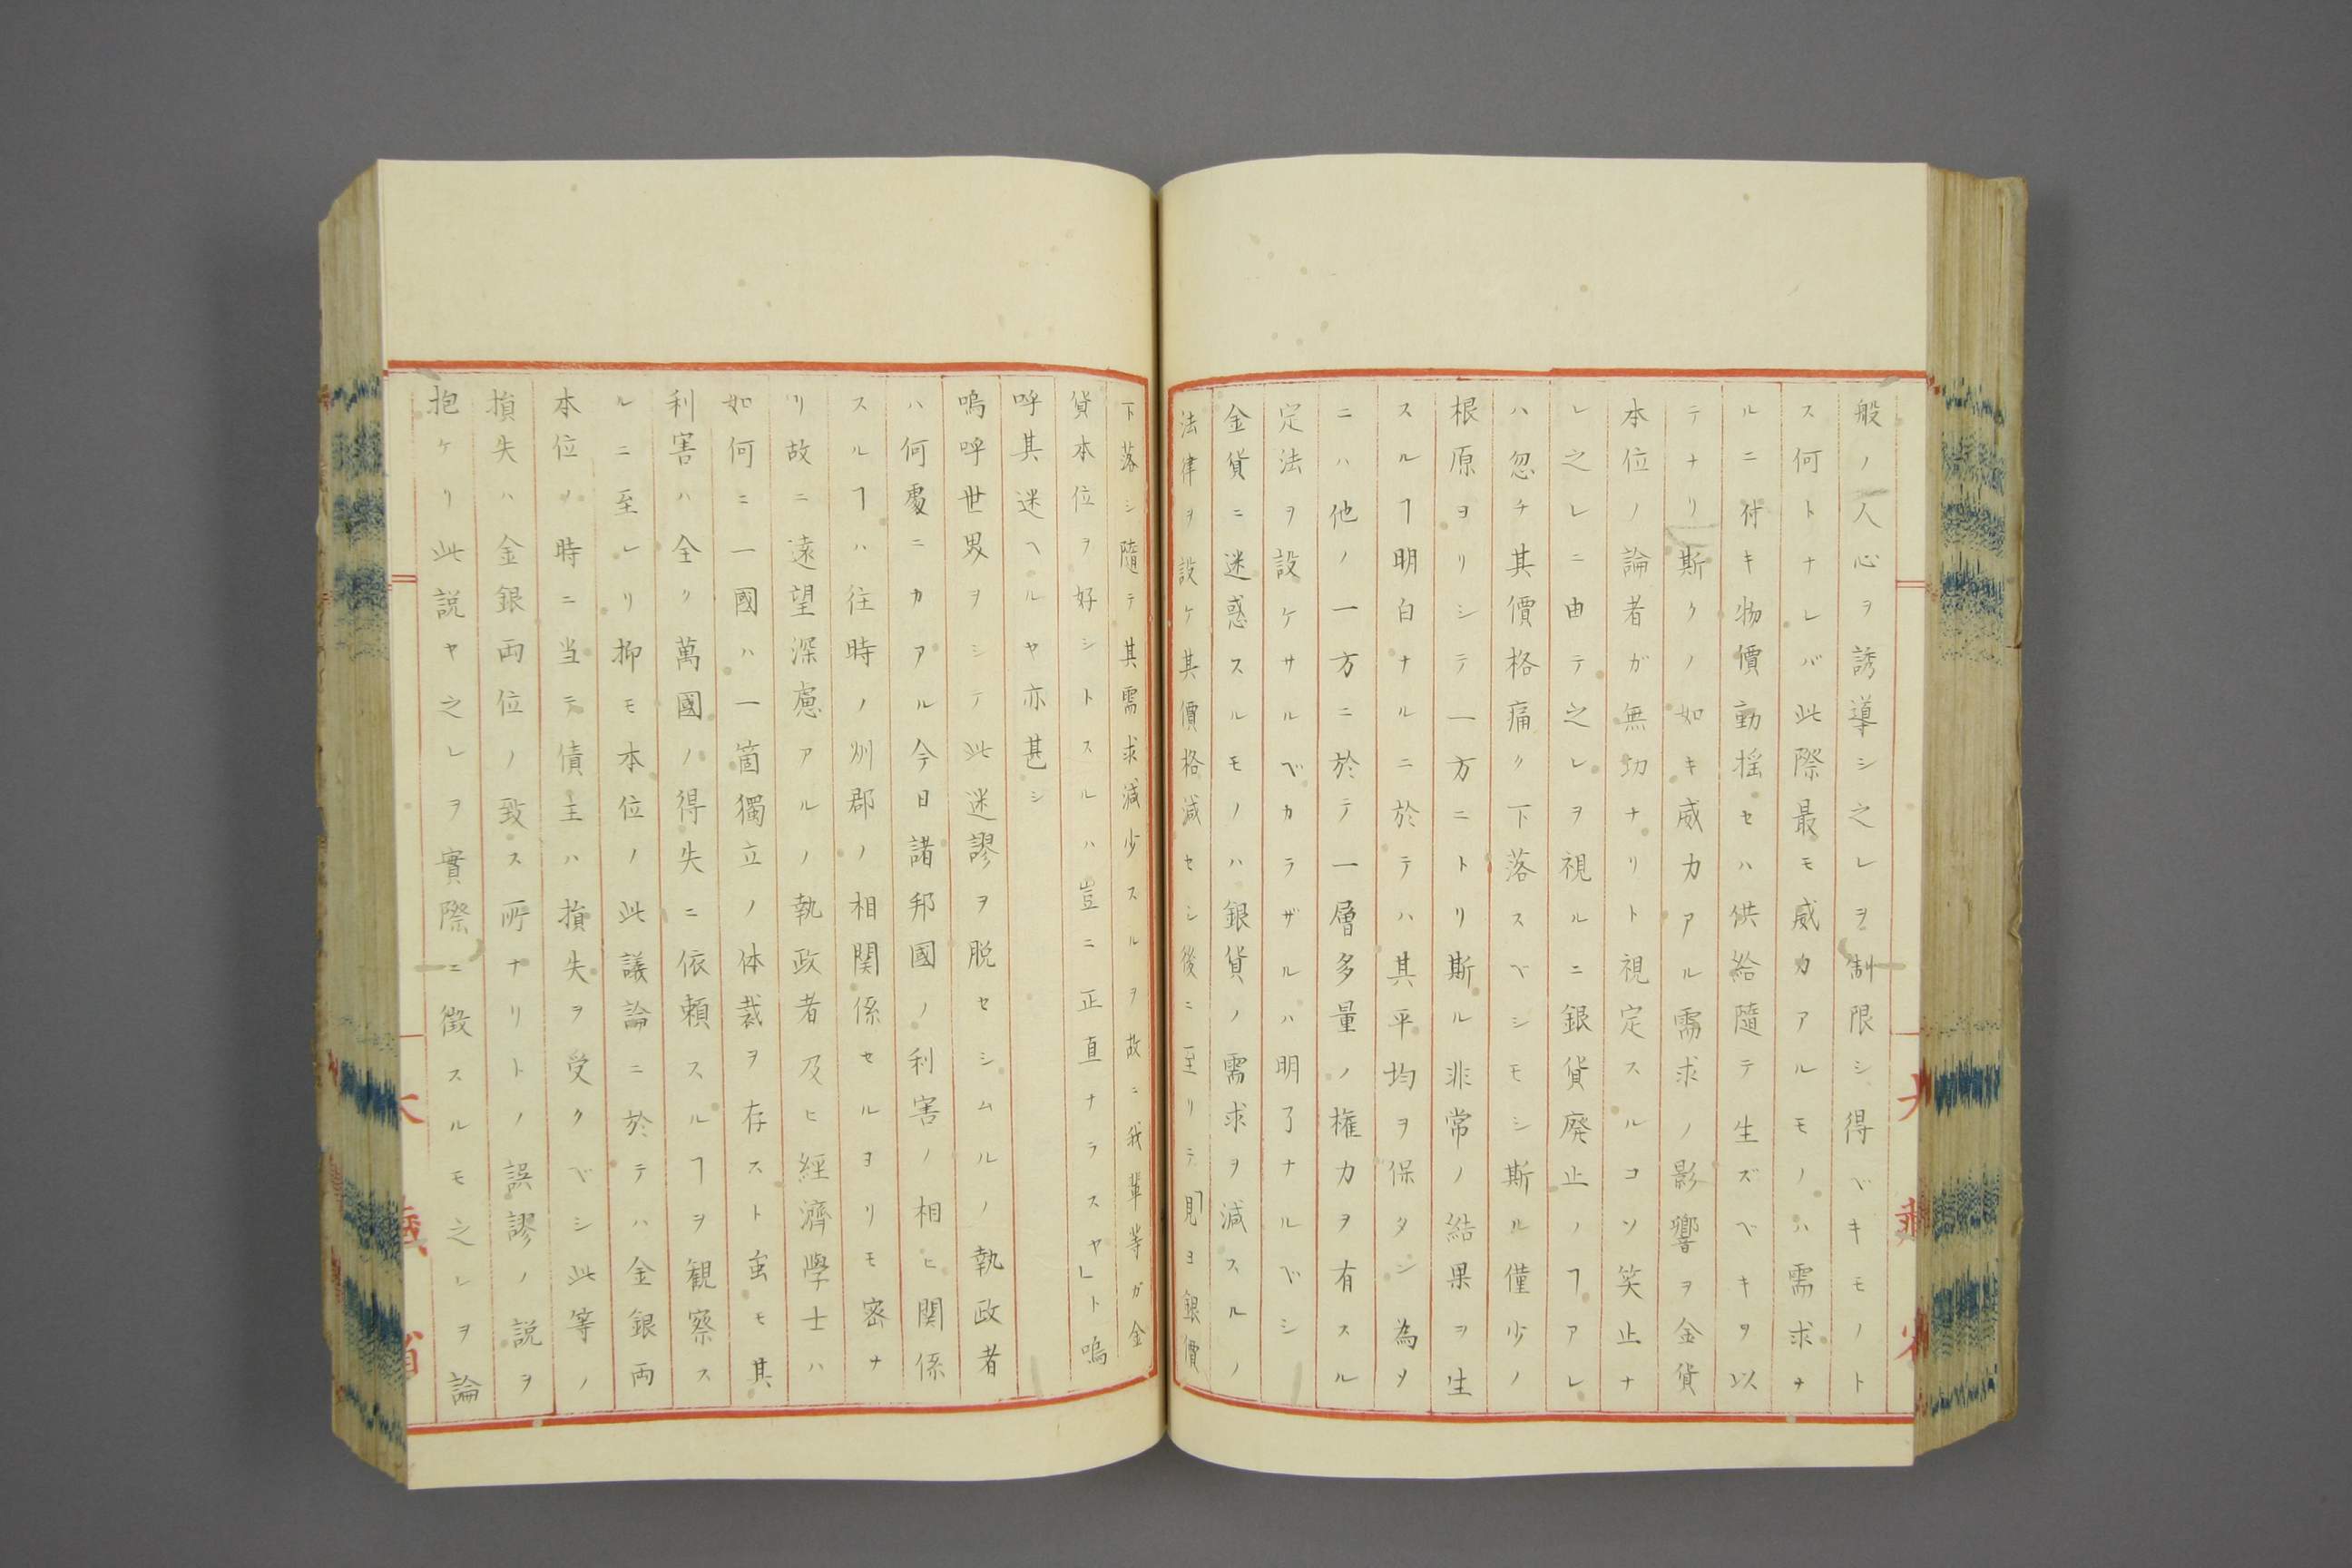 般ノ人心ヲ誘導シ之レヲ制限シ得ベキモノト
ス何トナレバ此際最モ威力アルモノハ需求ナ
ルニ付キ物價動揺セハ供給隨テ生ズベキヲ以
テナリ斯クノ如キ威力アル需求ノ影響ヲ金貨
本位ノ論者ガ無功ナリト視定スルコソ笑止ナ
レ之レニ由テ之レヲ視ルニ銀貨廃止ノヿアレ
ハ忽チ其價格痛ク下落スベシモシ斯ル僅少ノ
根原ヨリシテ一方ニトリ斯ル非常ノ結果ヲ生
スルヿ明白ナルニ於テハ其平均ヲ保タン為メ
ニハ他ノ一方ニ於テ一層多量ノ権力ヲ有スル
定法ヲ設ケサルベカラザルハ明了ナルベシ
金貨ニ迷惑スルモノハ銀貨ノ需求ヲ減スルノ
法律ヲ設ケ其價格減セシ後ニ至リテ「見ヨ銀價
下落シ隨テ其需求減少スルヲ故ニ我輩等ガ金
貨本位ヲ好シトスルハ豈ニ正直ナラスヤ」ト嗚
呼其迷ヘルヤ亦甚シ
嗚呼世界ヲシテ此迷謬ヲ脱セシムルノ執政者
ハ何處ニカアル今日諸邦國ノ利害ノ相ヒ関係
スルヿハ往時ノ州郡ノ相関係セルヨリモ密ナ
リ故ニ遠望深慮アルノ執政者及ヒ經濟學士ハ
如何ニ一國ハ一箇獨立ノ体裁ヲ存スト虽モ其
利害ハ全ク萬國ノ得失ニ依頼スルヿヲ観察ス
ルニ至レリ抑モ本位ノ此議論ニ於テハ金銀両
本位ノ時ニ当テ債主ハ損失ヲ受クベシ此等ノ
損失ハ金銀両位ノ致ス所ナリトノ誤謬ノ説ヲ
抱ケリ此説ヤ之レヲ實際ニ徴スルモ之レヲ論
大藏省